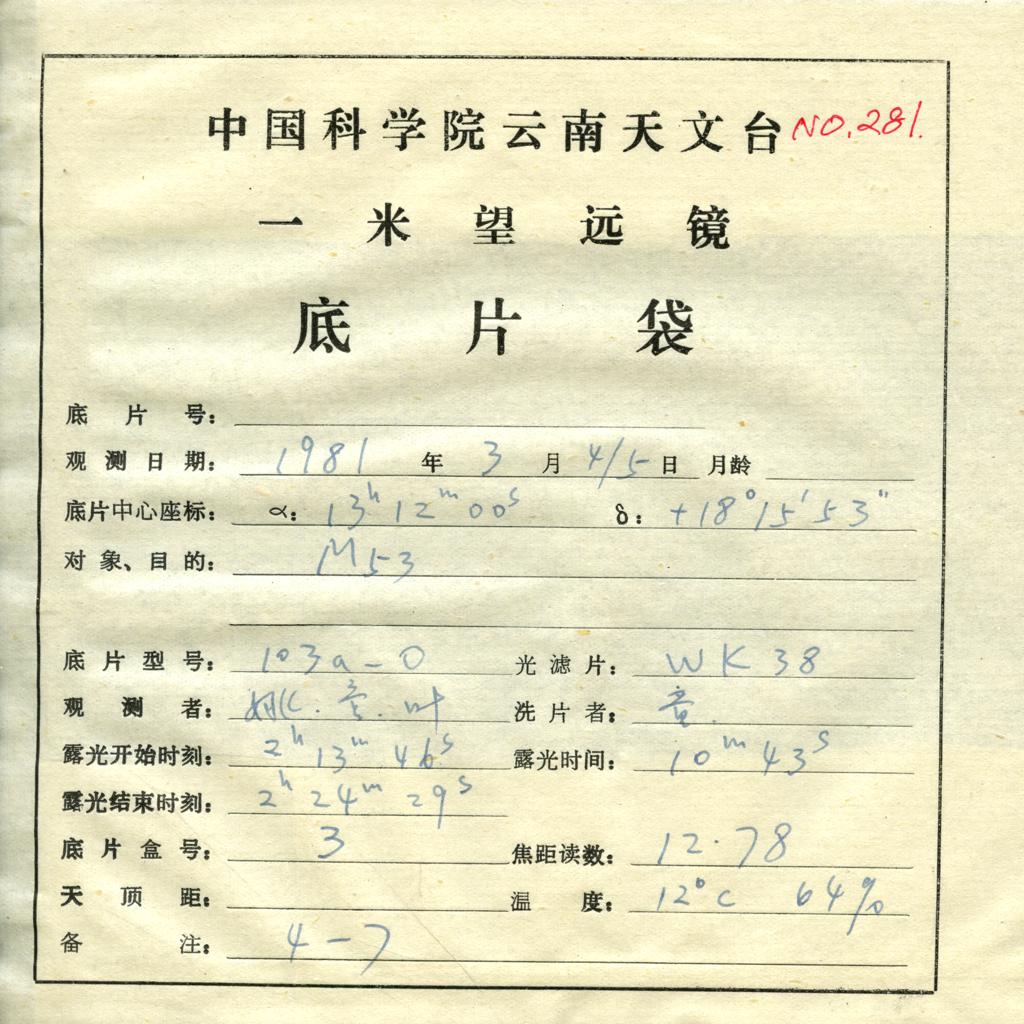 中国科学院云南天文台 NO.281.
一米望远镜
底片袋
底片号：
观测日期： 1981 年 3 月 4/5 日 月龄
底片中心座标： α： 13h 12m 00s δ： +18°15′53″
对象、目的： M53
底片型号： 103a-O 光滤片： WK38
观测者： 姚.童.叶 洗片者： 童.
露光开始时刻： 2h 13m 46s 露光时间： 10m 43s
露光结束时刻： 2h 24m 29s
底片盒号： 3 焦距读数： 12.78
天顶距： 温度： 12°C 64%
备注： 4-7